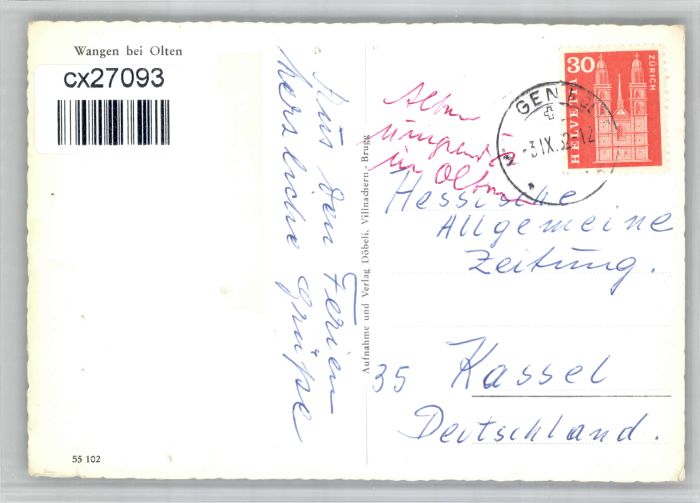 Wangen bei Olten
cx27093
Aus den Ferien
herzliche Grüße
Aufnahme und Verlag Döbeli, Villnachern-Brugg
30
HELVETIA
ZÜRICH
GEN
-3.IX.62-12
Hessische
Allgemeine
Zeitung.
35 Kassel
Deutschland.
55 102